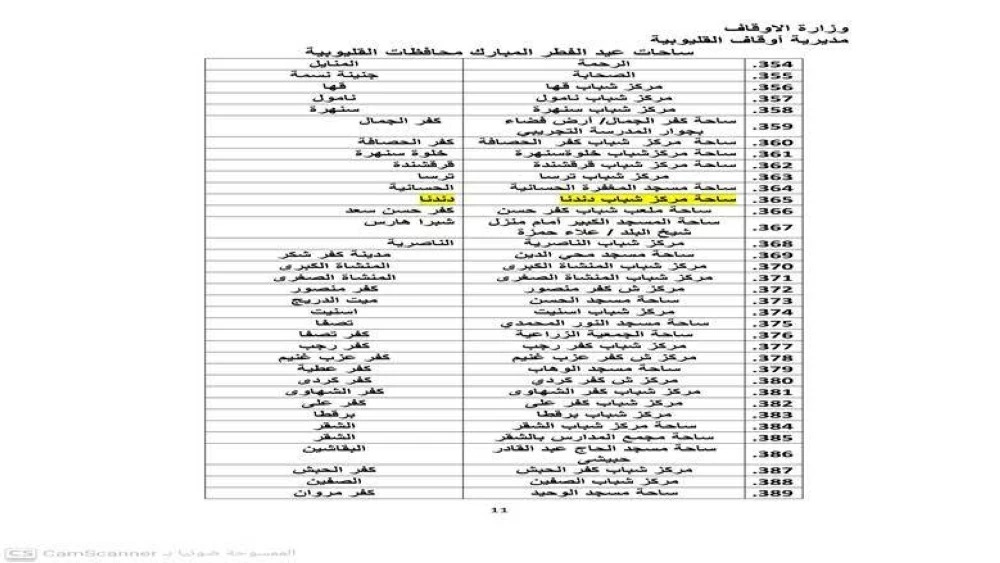 وزارة الاوقاف
مديرية أوقاف القليوبية
ساحات عيد الفطر المبارك محافظات القليوبية
354. الرحمة المنايل
355. الصحابة جنينة نسمة
356. مركز شباب قها قها
357. مركز شباب نامول نامول
358. مركز شباب سنهرة سنهرة
359. ساحة كفر الجمال/ أرض فضاء بجوار المدرسة التجريبي كفر الجمال
360. ساحة مركز شباب كفر الحصافة كفر الحصافة
361. ساحة مركزشباب خلوةسنهرة خلوة سنهرة
362. ساحة مركز شباب قرقشندة قرقشندة
363. مركز شباب ترسا ترسا
364. ساحة مسجد المغفرة الحسانية الحسانية
365. ساحة مركز شباب دندنا دندنا
366. ساحة ملعب شباب كفر حسن كفر حسن سعد
367. ساحة المسجد الكبير أمام منزل شيخ البلد / علاء حمزة شبرا هارس
368. مركز شباب الناصرية الناصرية
369. ساحة مسجد محي الدين مدينة كفر شكر
370. مركز شباب المنشاة الكبرى المنشاة الكبرى
371. مركز شباب المنشاة الصغرى المنشاة الصغرى
372. مركز ش كفر منصور كفر منصور
373. ساحة مسجد الحسن ميت الدريج
374. مركز شباب اسنيت اسنيت
375. ساحة مسجد النور المحمدي تصفا
376. ساحة الجمعية الزراعية كفر تصفا
377. مركز شباب كفر رجب كفر رجب
378. مركز ش كفر عزب غنيم كفر عزب غنيم
379. ساحة مسجد الوهاب كفر عطية
380. مركز ش كفر كردي كفر كردى
381. مركز شباب كفر الشهاوى كفر الشهاوى
382. مركز شباب كفر على كفر على
383. مركز شباب برقطا برقطا
384. ساحة مركز شباب الشقر الشقر
385. ساحة مجمع المدارس بالشقر الشقر
386. ساحة مسجد الحاج عبد القادر حبيشى البقاشين
387. مركز شباب كفر الحبش كفر الحبش
388. مركز شباب الصفين الصفين
389. ساحة مسجد الوحيد كفر مروان
11
الممسوحة ضوئيا بـ CamScanner
CS